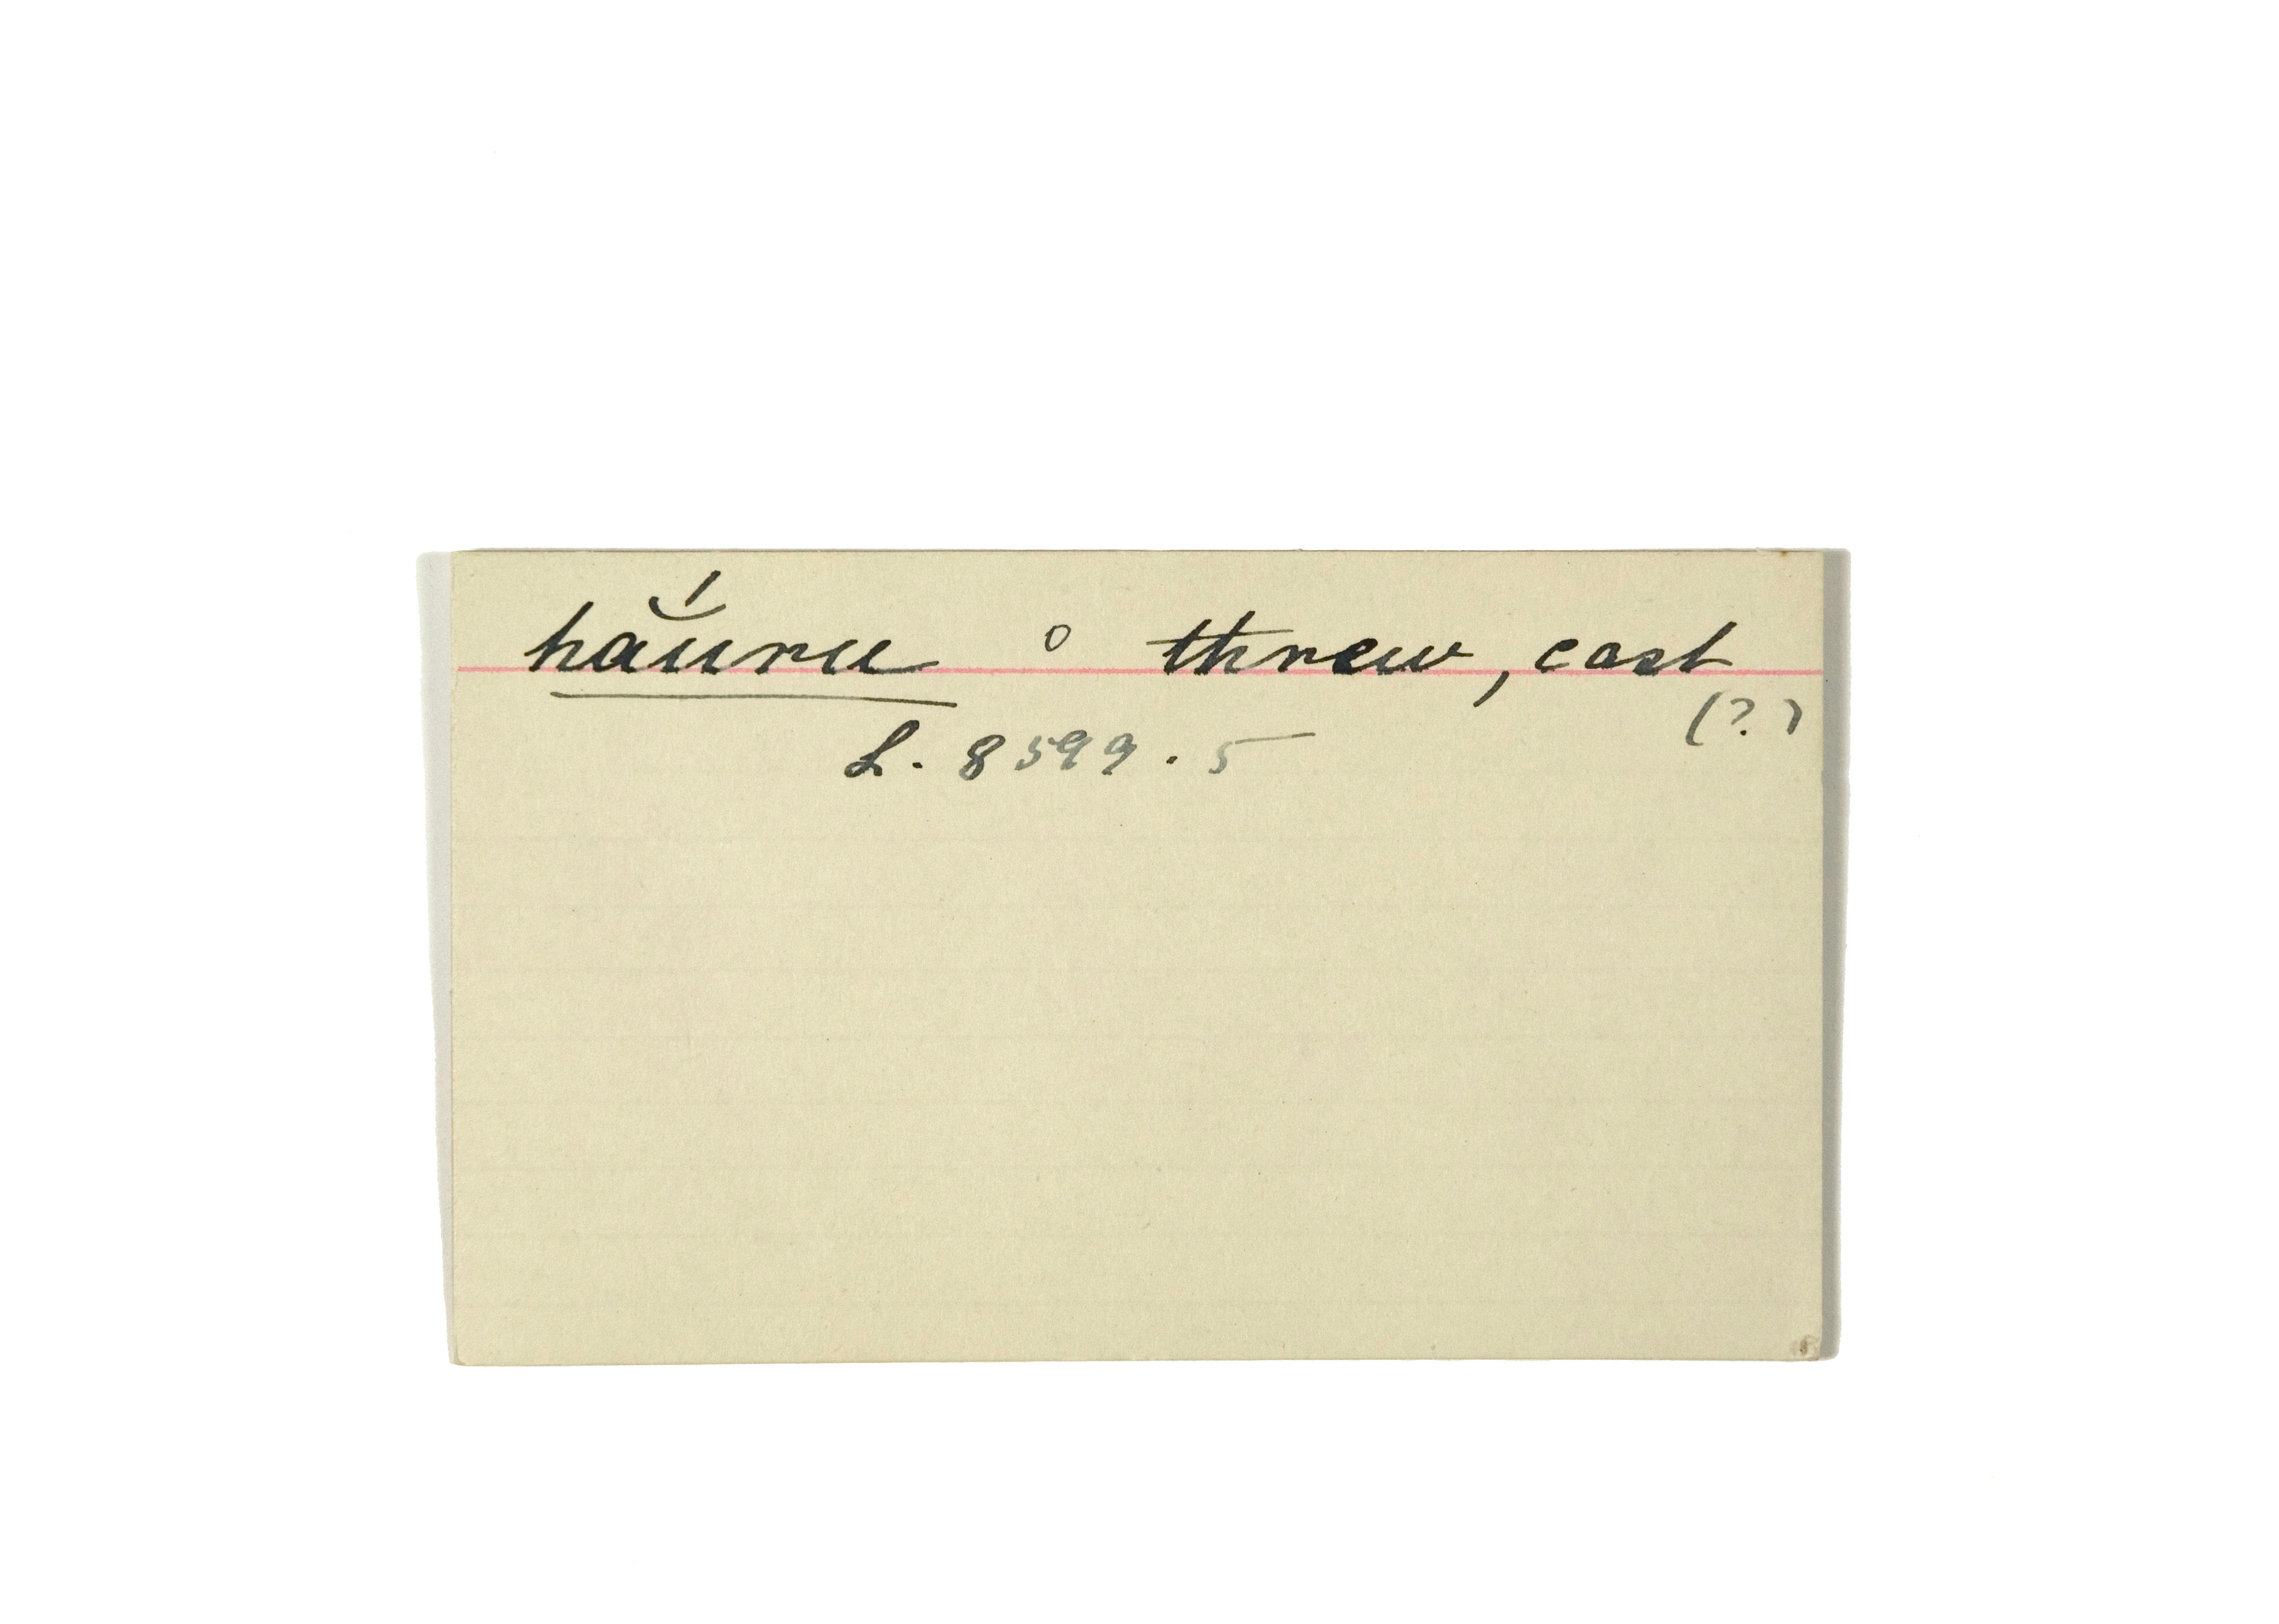 hắuru ° threw, cast
(?)
L. 8599.5